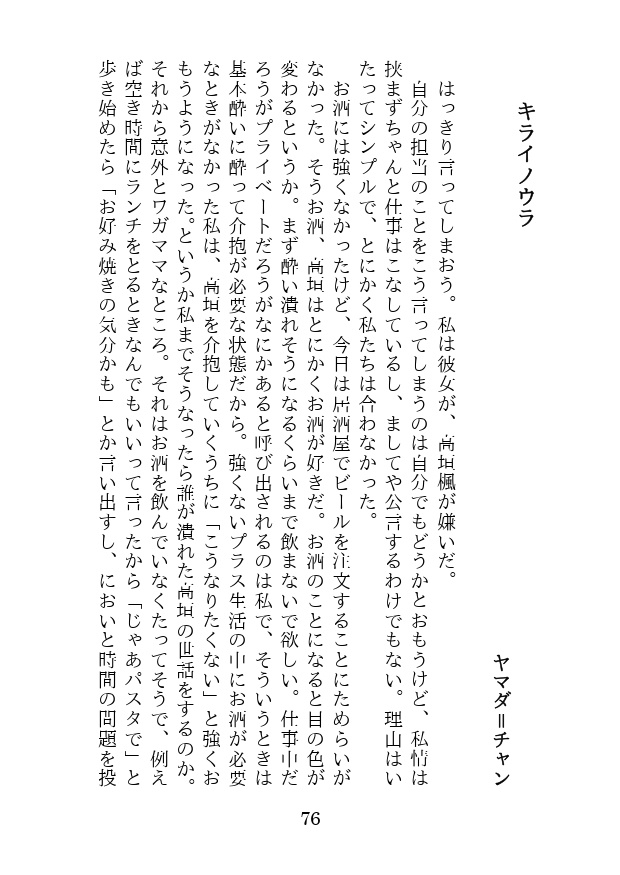 キライノウラ
ヤマダ＝チャン
はっきり言ってしまおう。私は彼女が、高垣楓が嫌いだ。
自分の担当のことをこう言ってしまうのは自分でもどうかとおもうけど、私情は
挟まずちゃんと仕事はこなしているし、ましてや公言するわけでもない。理由はい
たってシンプルで、とにかく私たちは合わなかった。
お酒には強くなかったけど、今日は居酒屋でビールを注文することにためらいが
なかった。そうお酒、高垣はとにかくお酒が好きだ。お酒のことになると目の色が
変わるというか。まず酔い潰れそうになるくらいまで飲まないで欲しい。仕事中だ
ろうがプライベートだろうがなにかあると呼び出されるのは私で、そういうときは
基本酔いに酔って介抱が必要な状態だから。強くないプラス生活の中にお酒が必要
なときがなかった私は、高垣を介抱していくうちに「こうなりたくない」と強くお
もうようになった。というか私までそうなったら誰が潰れた高垣の世話をするのか。
それから意外とワガママなところ。それはお酒を飲んでいなくたってそうで、例え
ば空き時間にランチをとるときなんでもいいって言ったから「じゃあパスタで」と
歩き始めたら「お好み焼きの気分かも」とか言い出すし、においと時間の問題を投
76